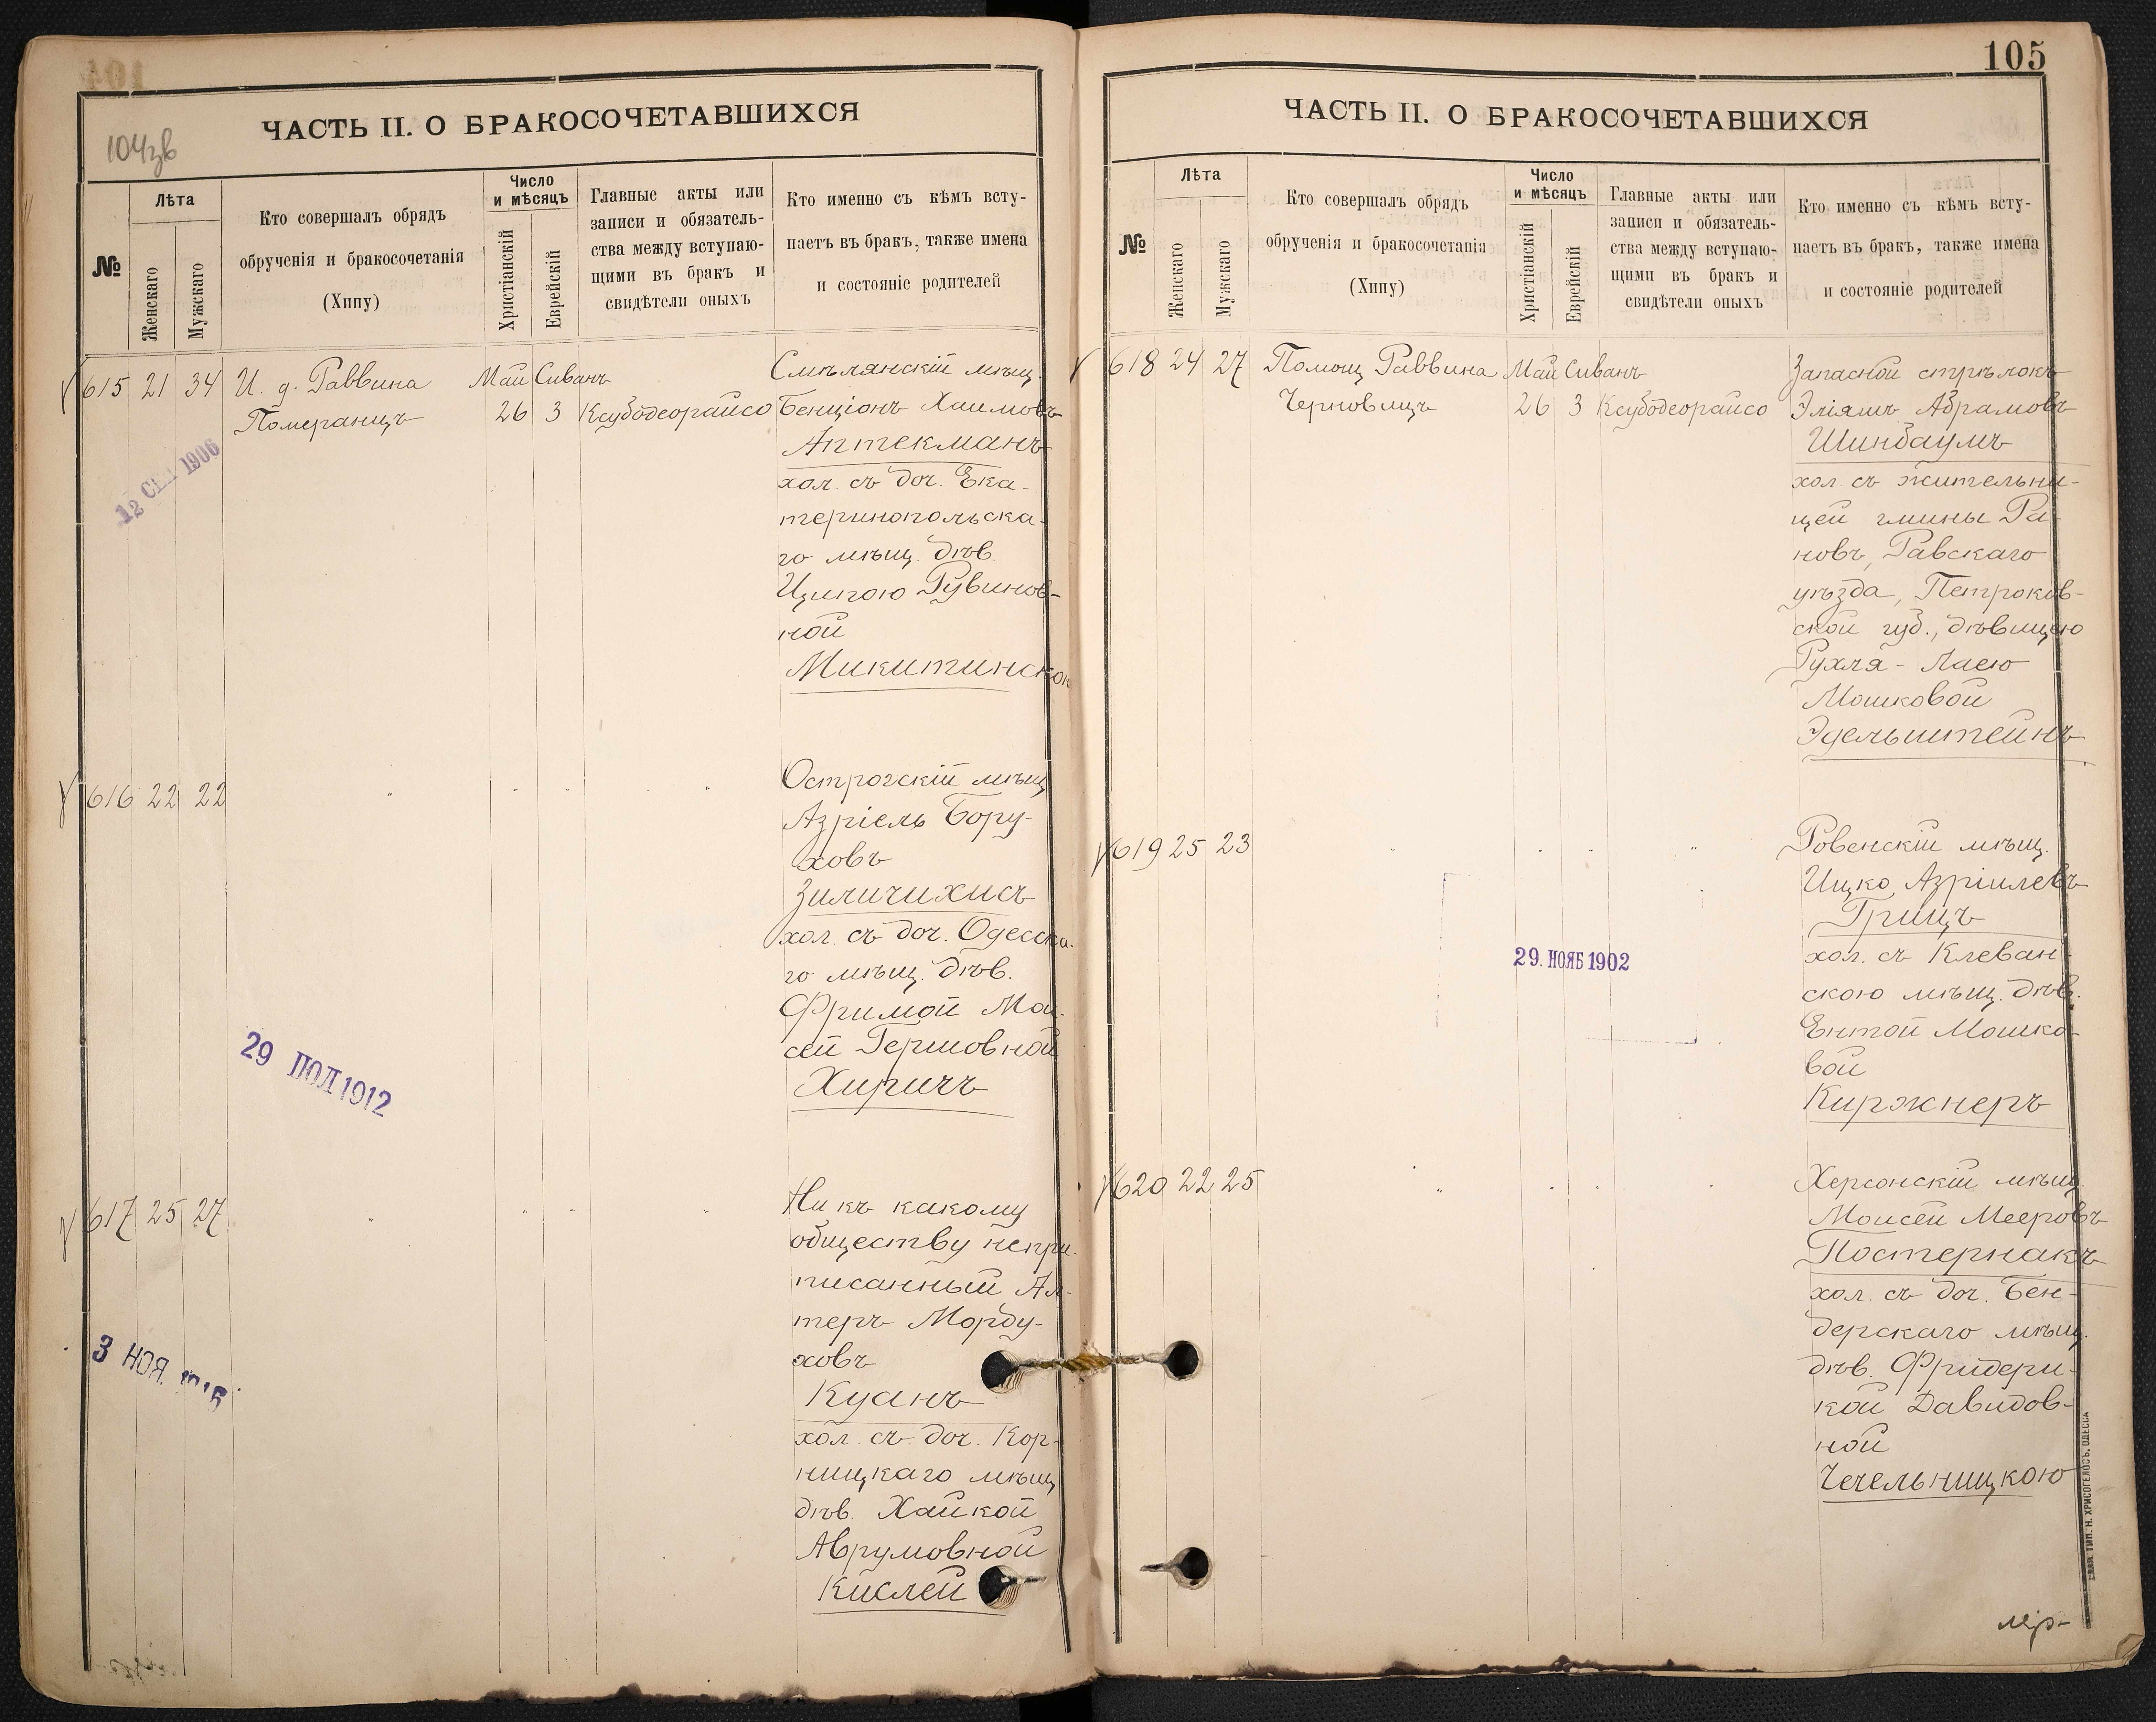 104зв
ЧАСТЬ II. О БРАКОСОЧЕТАВШИХСЯ
№
Лѣта
Женскаго
Мужскаго
Кто совершалъ обрядъ
обрученія и бракосочетанія
(Хипу)
Число
и мѣсяцъ
Христіанскій
Еврейскій
Главные акты или
записи и обязатель-
ства между вступаю-
щими въ бракъ и
свидѣтели оныхъ
Кто именно съ кѣмъ всту-
паетъ въ бракъ, также имена
и состояніе родителей
615 21 34 И. д. Раввина Май Сиванъ Смѣлянскій мѣщ.
Померанцъ 26 3 Ксубодеорайсо Бенціонъ Хаимовъ
Аптекманъ
хол. съ доч. Ека-
теринопольска-
го мѣщ. дѣв.
Ципою Рувинов-
ной
Микитинскою
12 СЕН 1906
616 22 22 " " " " Острогскій мѣщ.
Азріель Бору-
ховъ
Зиличихисъ
хол. съ доч. Одесска-
го мѣщ. дѣв.
Фримой Мои-
сей Гершовной
Хиричъ
29 ПОЛ 1912
617 25 27 " " " " Ни къ какому
обществу непри-
писанный Ал-
теръ Морду-
ховъ
Куанъ
хол. съ доч. Кор-
ницкаго мѣщ.
дѣв. Хайкой
Аврумовной
Кислей
3 НОЯ.
105
ЧАСТЬ II. О БРАКОСОЧЕТАВШИХСЯ
№
Лѣта
Женскаго
Мужскаго
Кто совершалъ обрядъ
обрученія и бракосочетанія
(Хипу)
Число
и мѣсяцъ
Христіанскій
Еврейскій
Главные акты или
записи и обязатель-
ства между вступаю-
щими въ бракъ и
свидѣтели оныхъ
Кто именно съ кѣмъ всту-
паетъ въ бракъ, также имена
и состояніе родителей
618 24 27 Помощ Раввина Май Сиванъ Запасной стрѣлокъ
Черновицъ 26 3 Ксубодеорайсо Эліяшъ Абрамовъ
Шинбаумъ
хол. съ жительни-
цей гмины Ра-
новъ, Равскаго
уѣзда, Петроков-
ской губ., дѣвицею
Рухля-Лаею
Мошковой
Эдельштейнъ
619 25 23 " " " " Ровенскій мѣщ.
Ицко Азріилевъ
Грицъ
хол. съ Клеван-
скою мѣщ. дѣв.
Ентой Мошко-
вой
Киржнеръ
29. НОЯБ 1902
620 22 25 " " " " Херсонскій мѣщ.
Моисей Мееровъ
Постернакъ
хол. съ доч. Бен-
дерскаго мѣщ.
дѣв. Фридери-
кой Давидов-
ной
Чечельницкою
ТИП. Н. ХРИСОГЕЛОСЪ, ОДЕССА